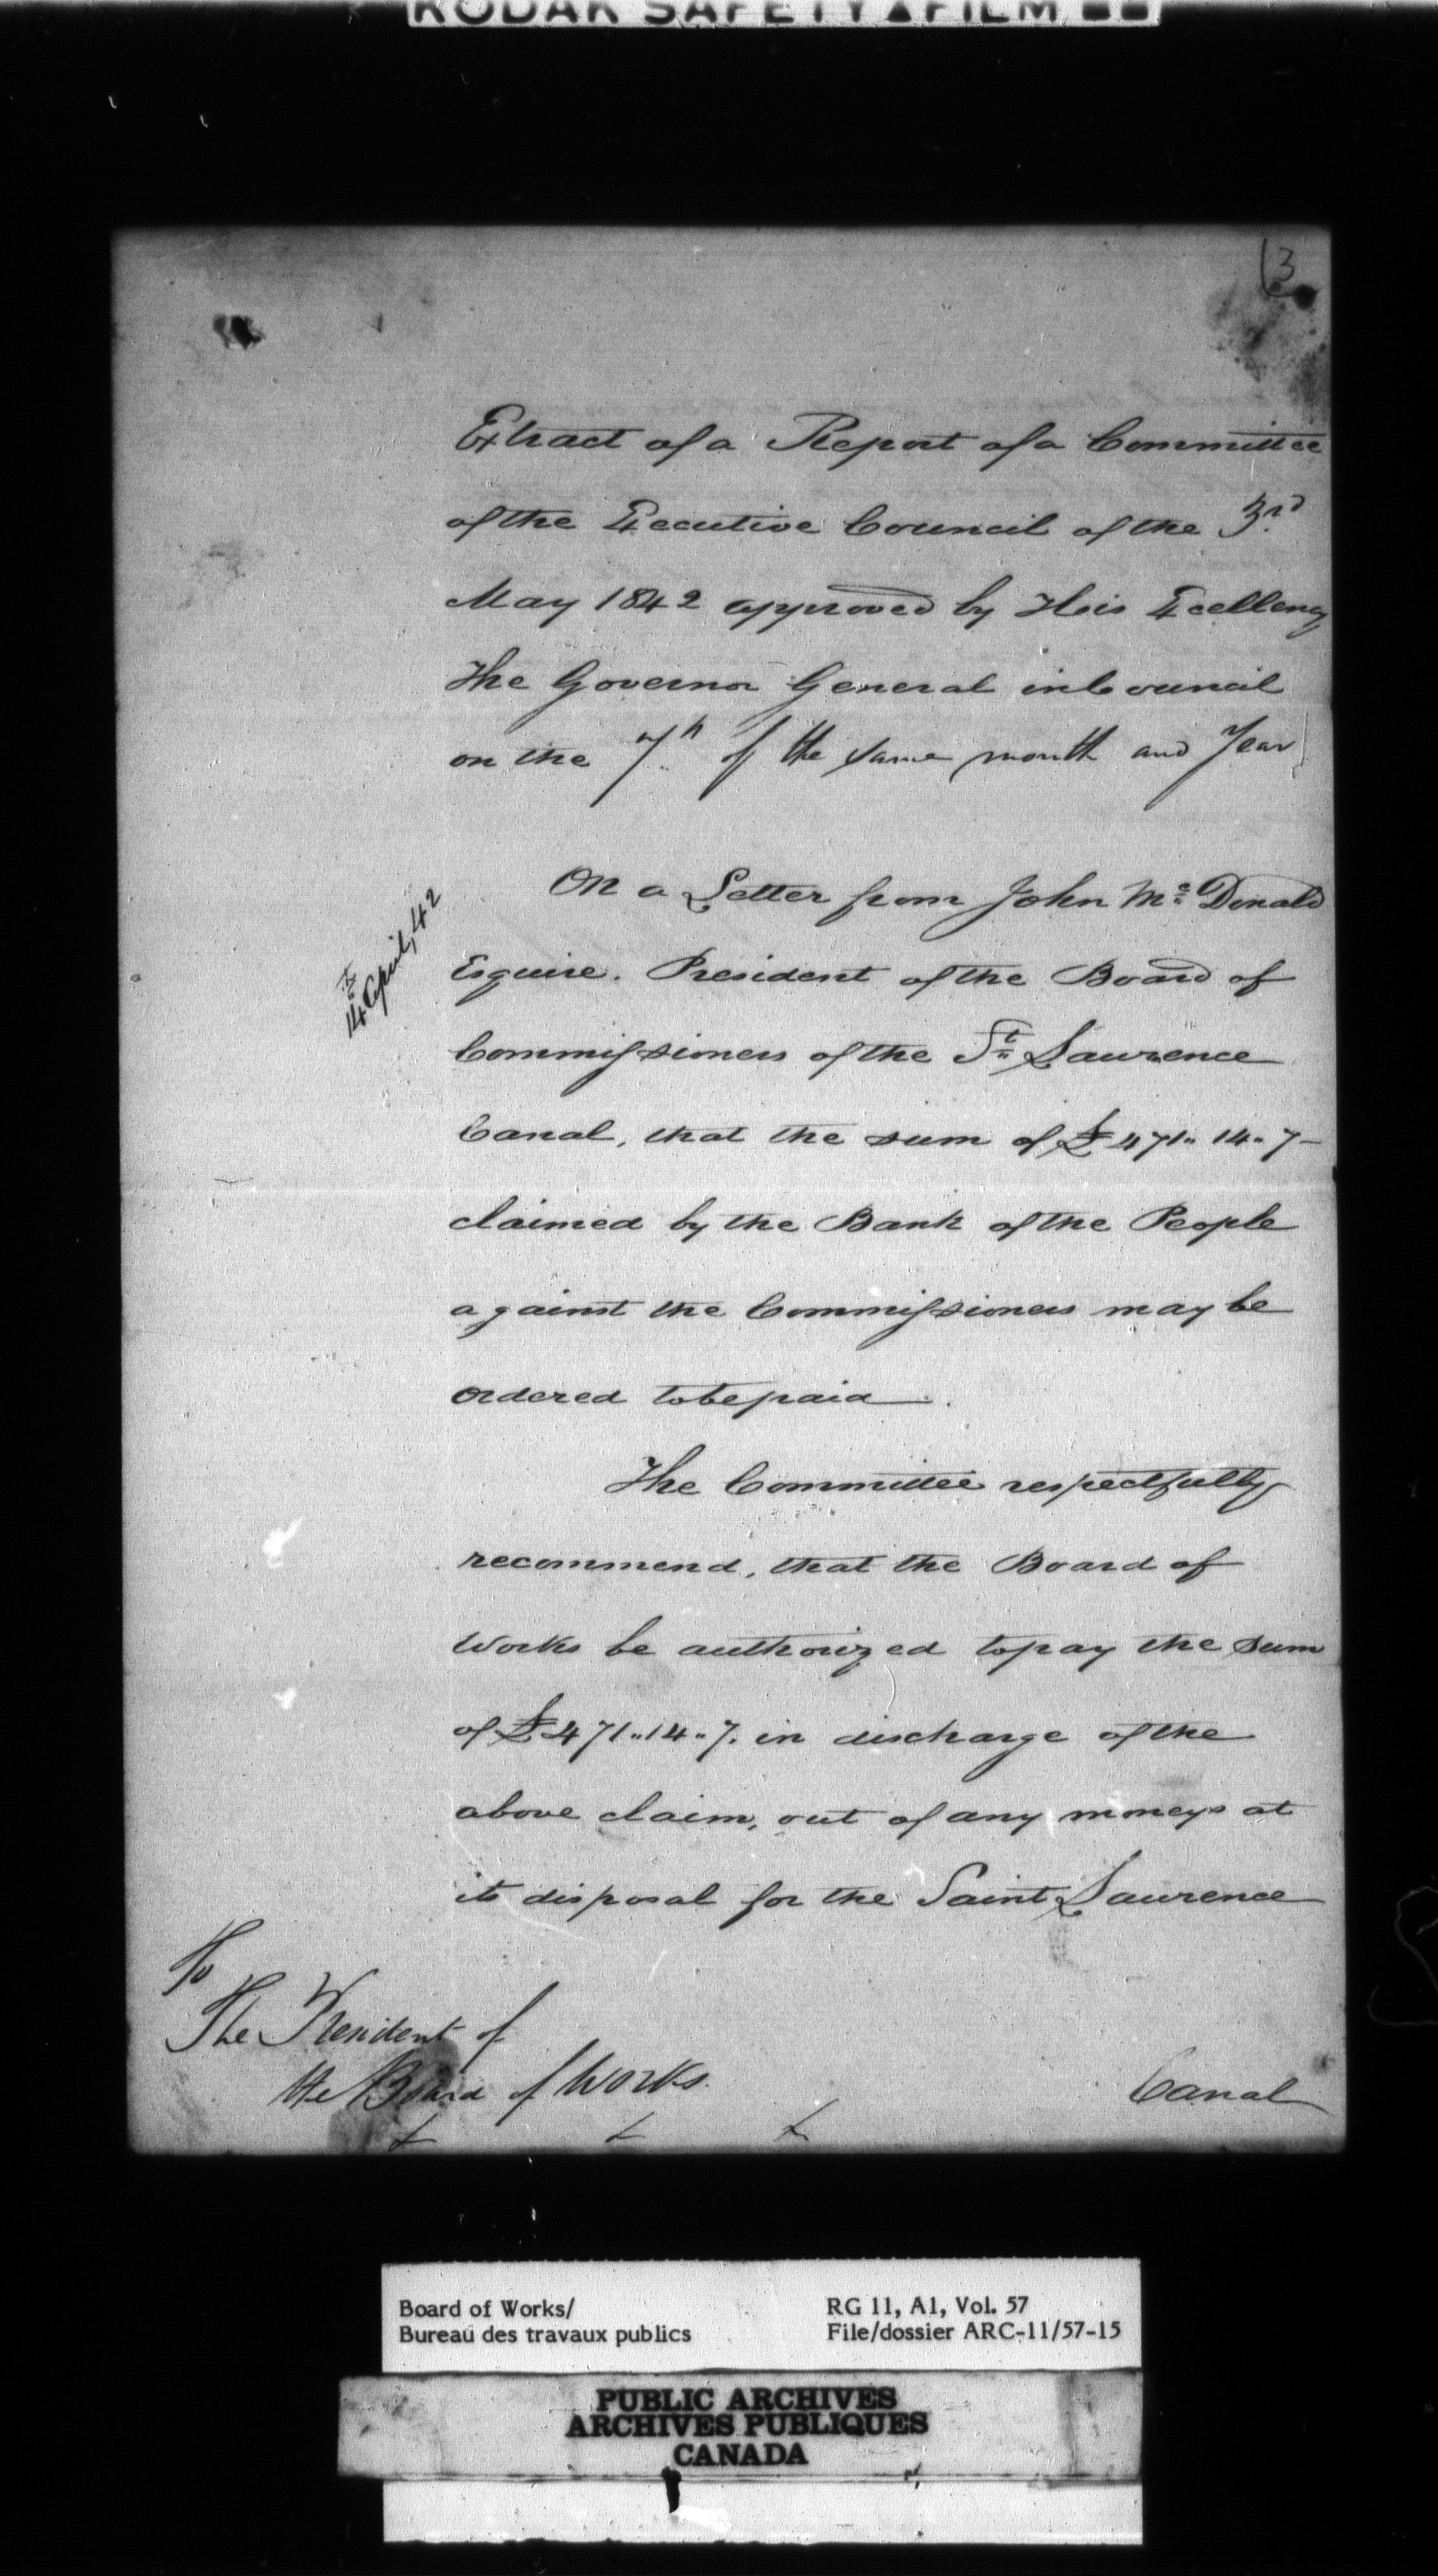 KODAK SAFETY FILM
13
Extract of a Report of a Committee
of the Executive Council of the 3rd
May 1842 approved by His Excellency
The Governor General in Council
on the 7th of the same month and Year
14 April, 42
On a Letter from John Mc Donald
Esquire. President of the Board of
Commissioners of the St Lawrence
Canal, that the sum of £471.. 14.. 7-
claimed by the Bank of the People
against the Commissioners may be
ordered to be paid.
The Committee respectfully
recommend, that the Board of
Works be authorized to pay the sum
of £471..14..7. in discharge of the
above claim, out of any moneys at
its disposal for the Saint Lawrence
Canal
To
The President of
the Board of Works.
Board of Works/
Bureau des travaux publics
RG 11, A1, Vol. 57
File/dossier ARC-11/57-15
PUBLIC ARCHIVES
ARCHIVES PUBLIQUES
CANADA